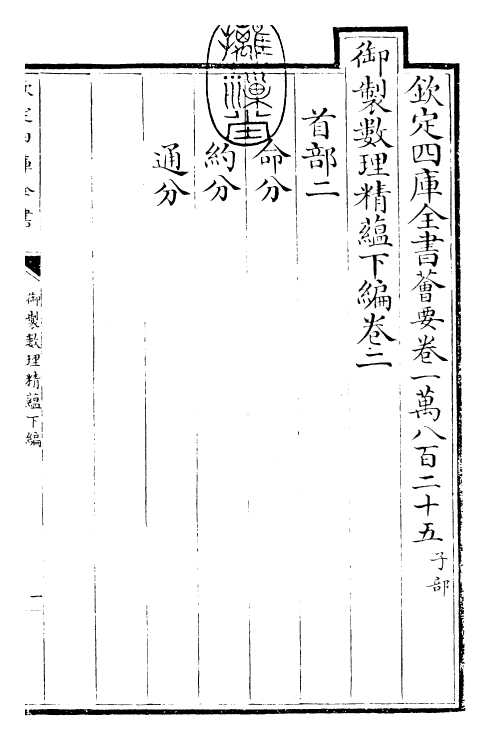 欽定四庫全書薈要卷一萬八百二十五 子部
御製數理精蘊下編卷二
首部二
命分
約分
通分
欽定四庫全書
御製數理精蘊下編
一